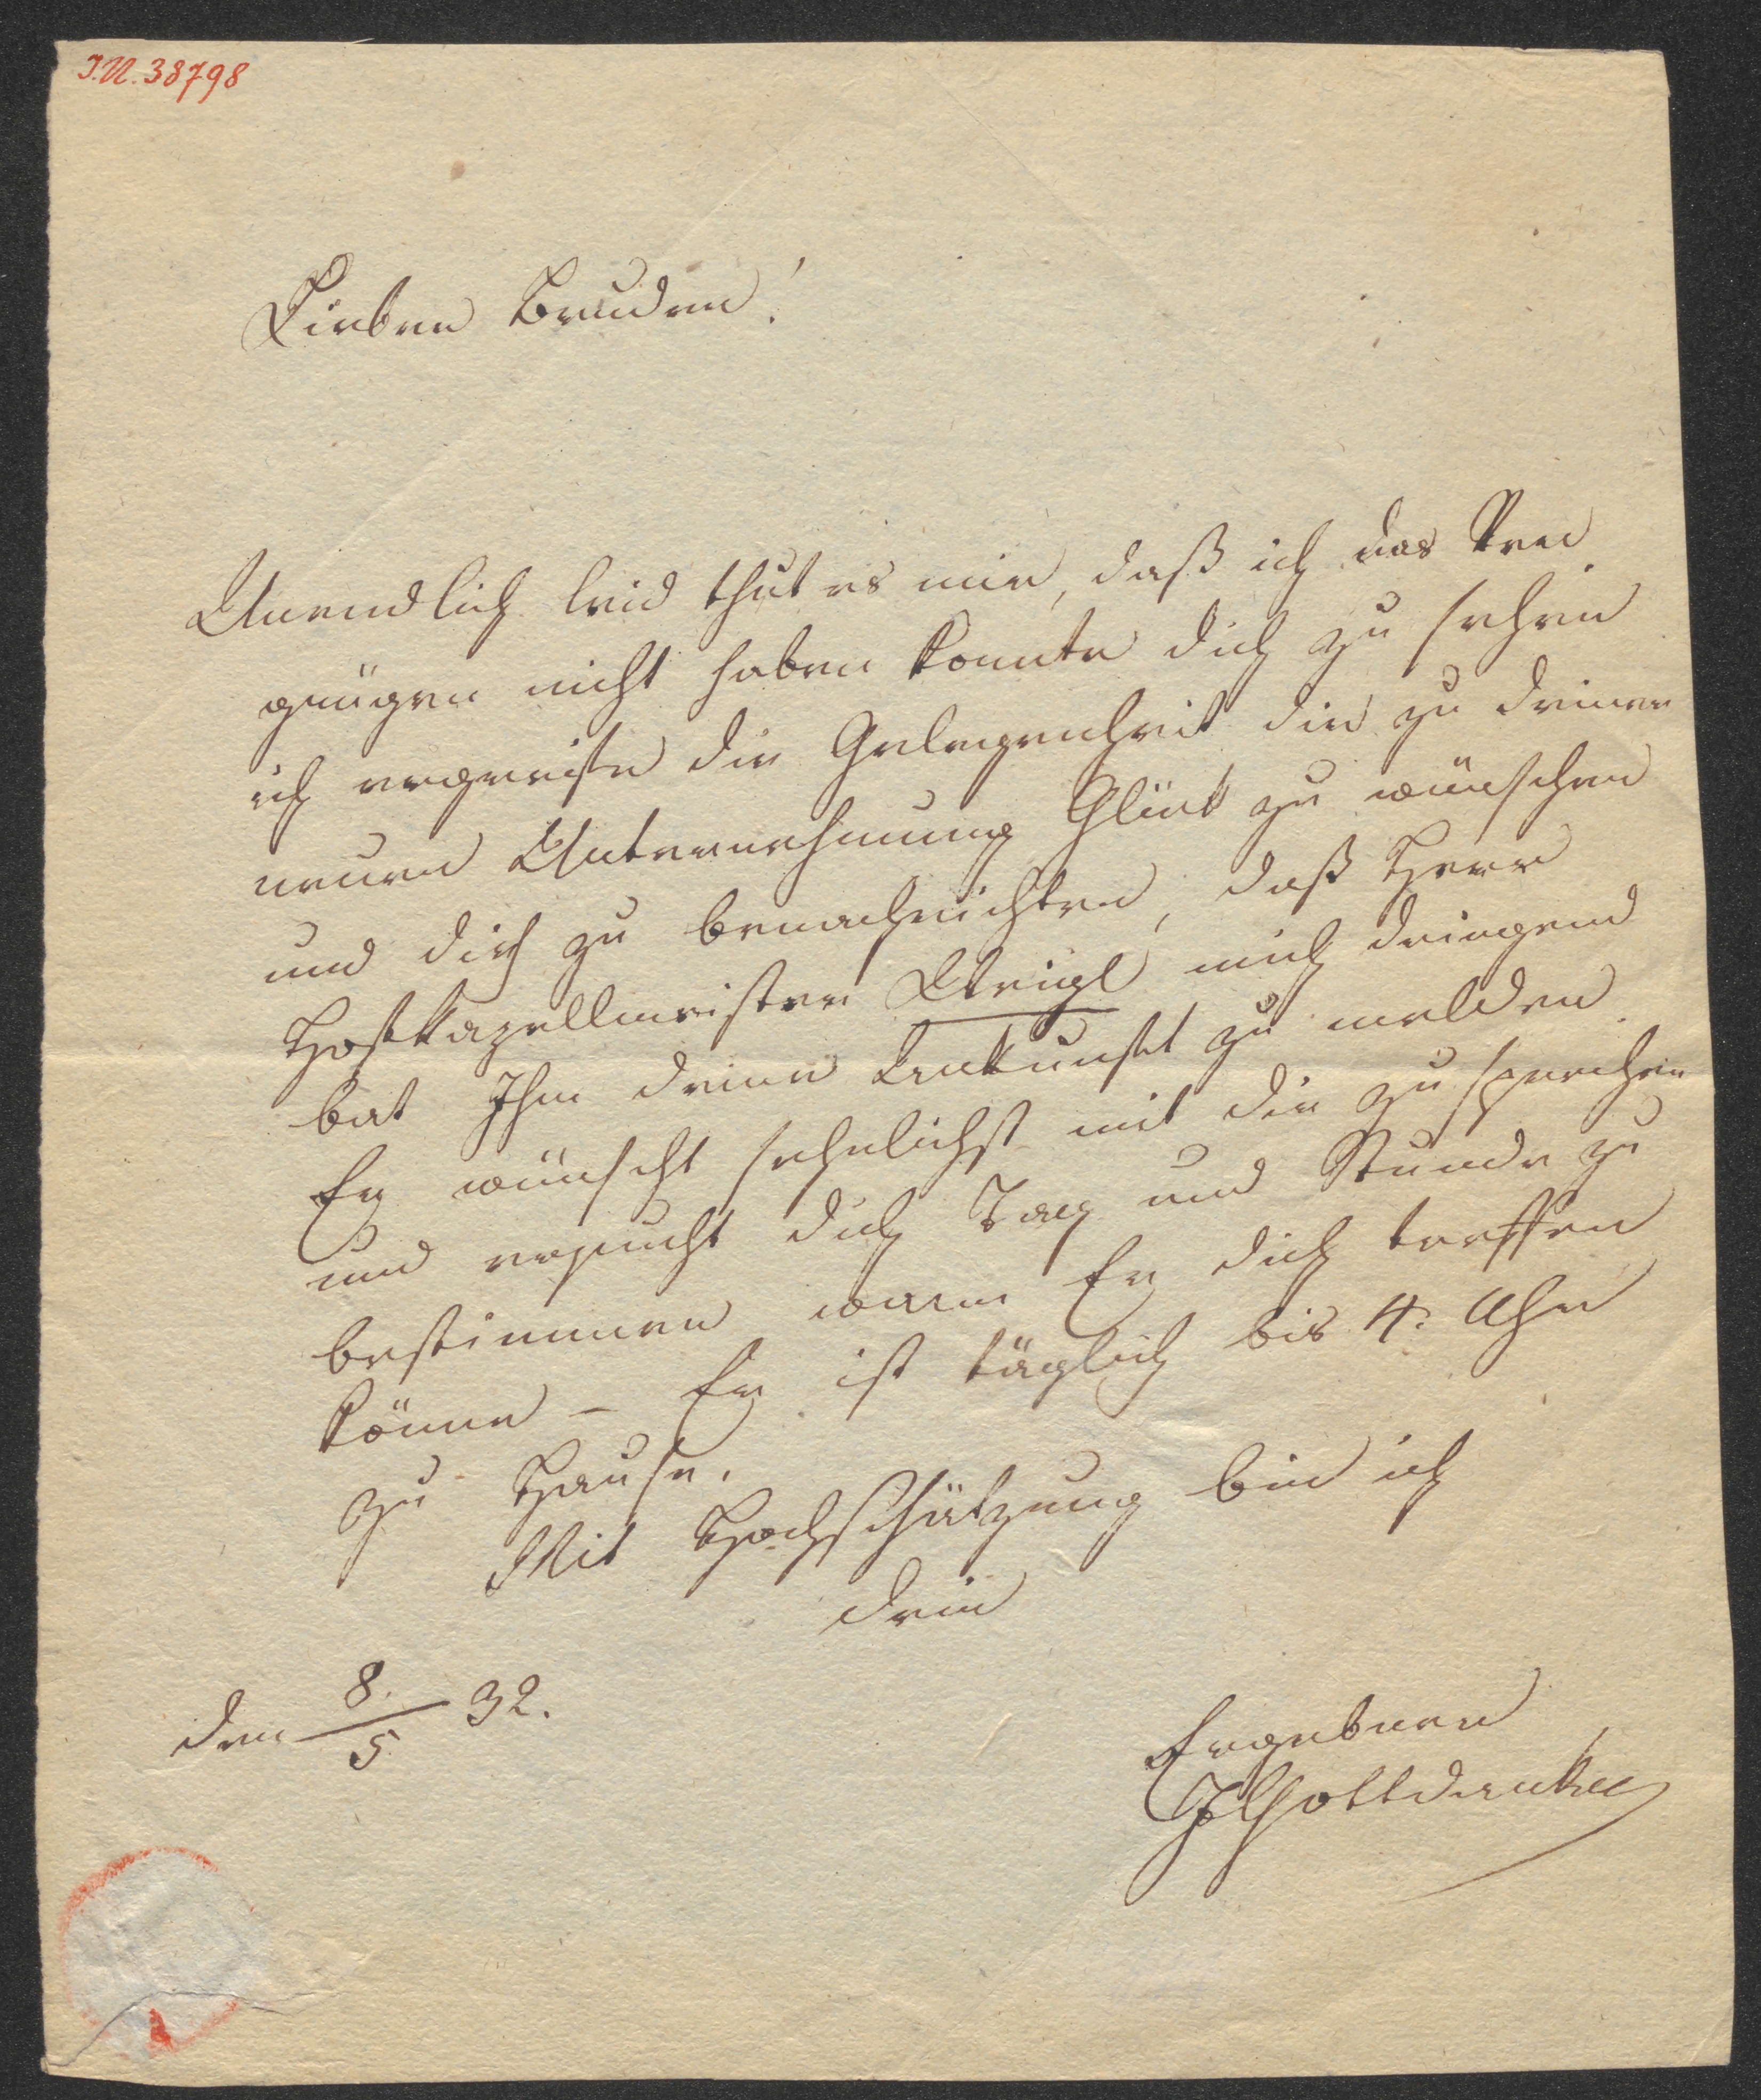 I.N. 38798
Lieber Bruder!
Unendlich leid thut es mir, daß ich das Ver
gnügen nicht haben konnte dich zu sehen
ich ergreife die Gelegenheit dir zu deiner
neuen Unternehmung Glück zu wünschen
und dich zu benachrichten, daß Herr
Hofkapellmeister Weigl mich dringend
bat Ihm deine Ankunft zu melden.
Er wünscht sehnlichst mit dir zu sprechen
und ersucht dich Tag und Stunde zu
bestimmen wann Er dich treffen
könne – Er ist täglich bis 4: Uhr
zu Hause.
Mit Hochschätzung bin ich
dein
den 8./5 32.
Ergebner
JGottdank